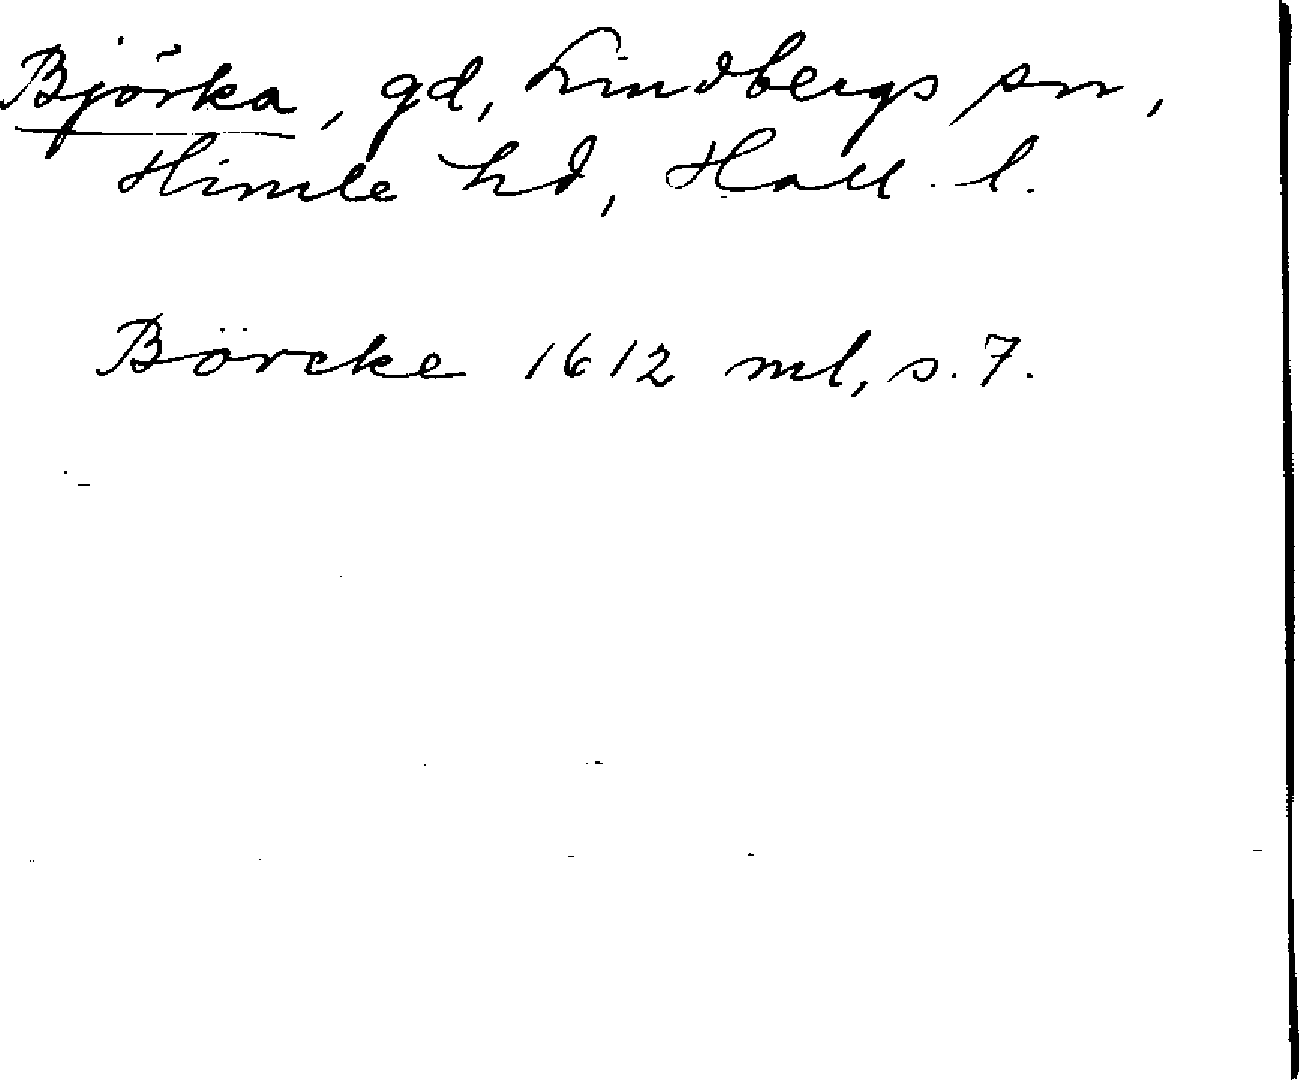 Björka, gd, Lindbergs sn,
Himle hd, Hall. l.
Börcke 1612 ml, s. 7.